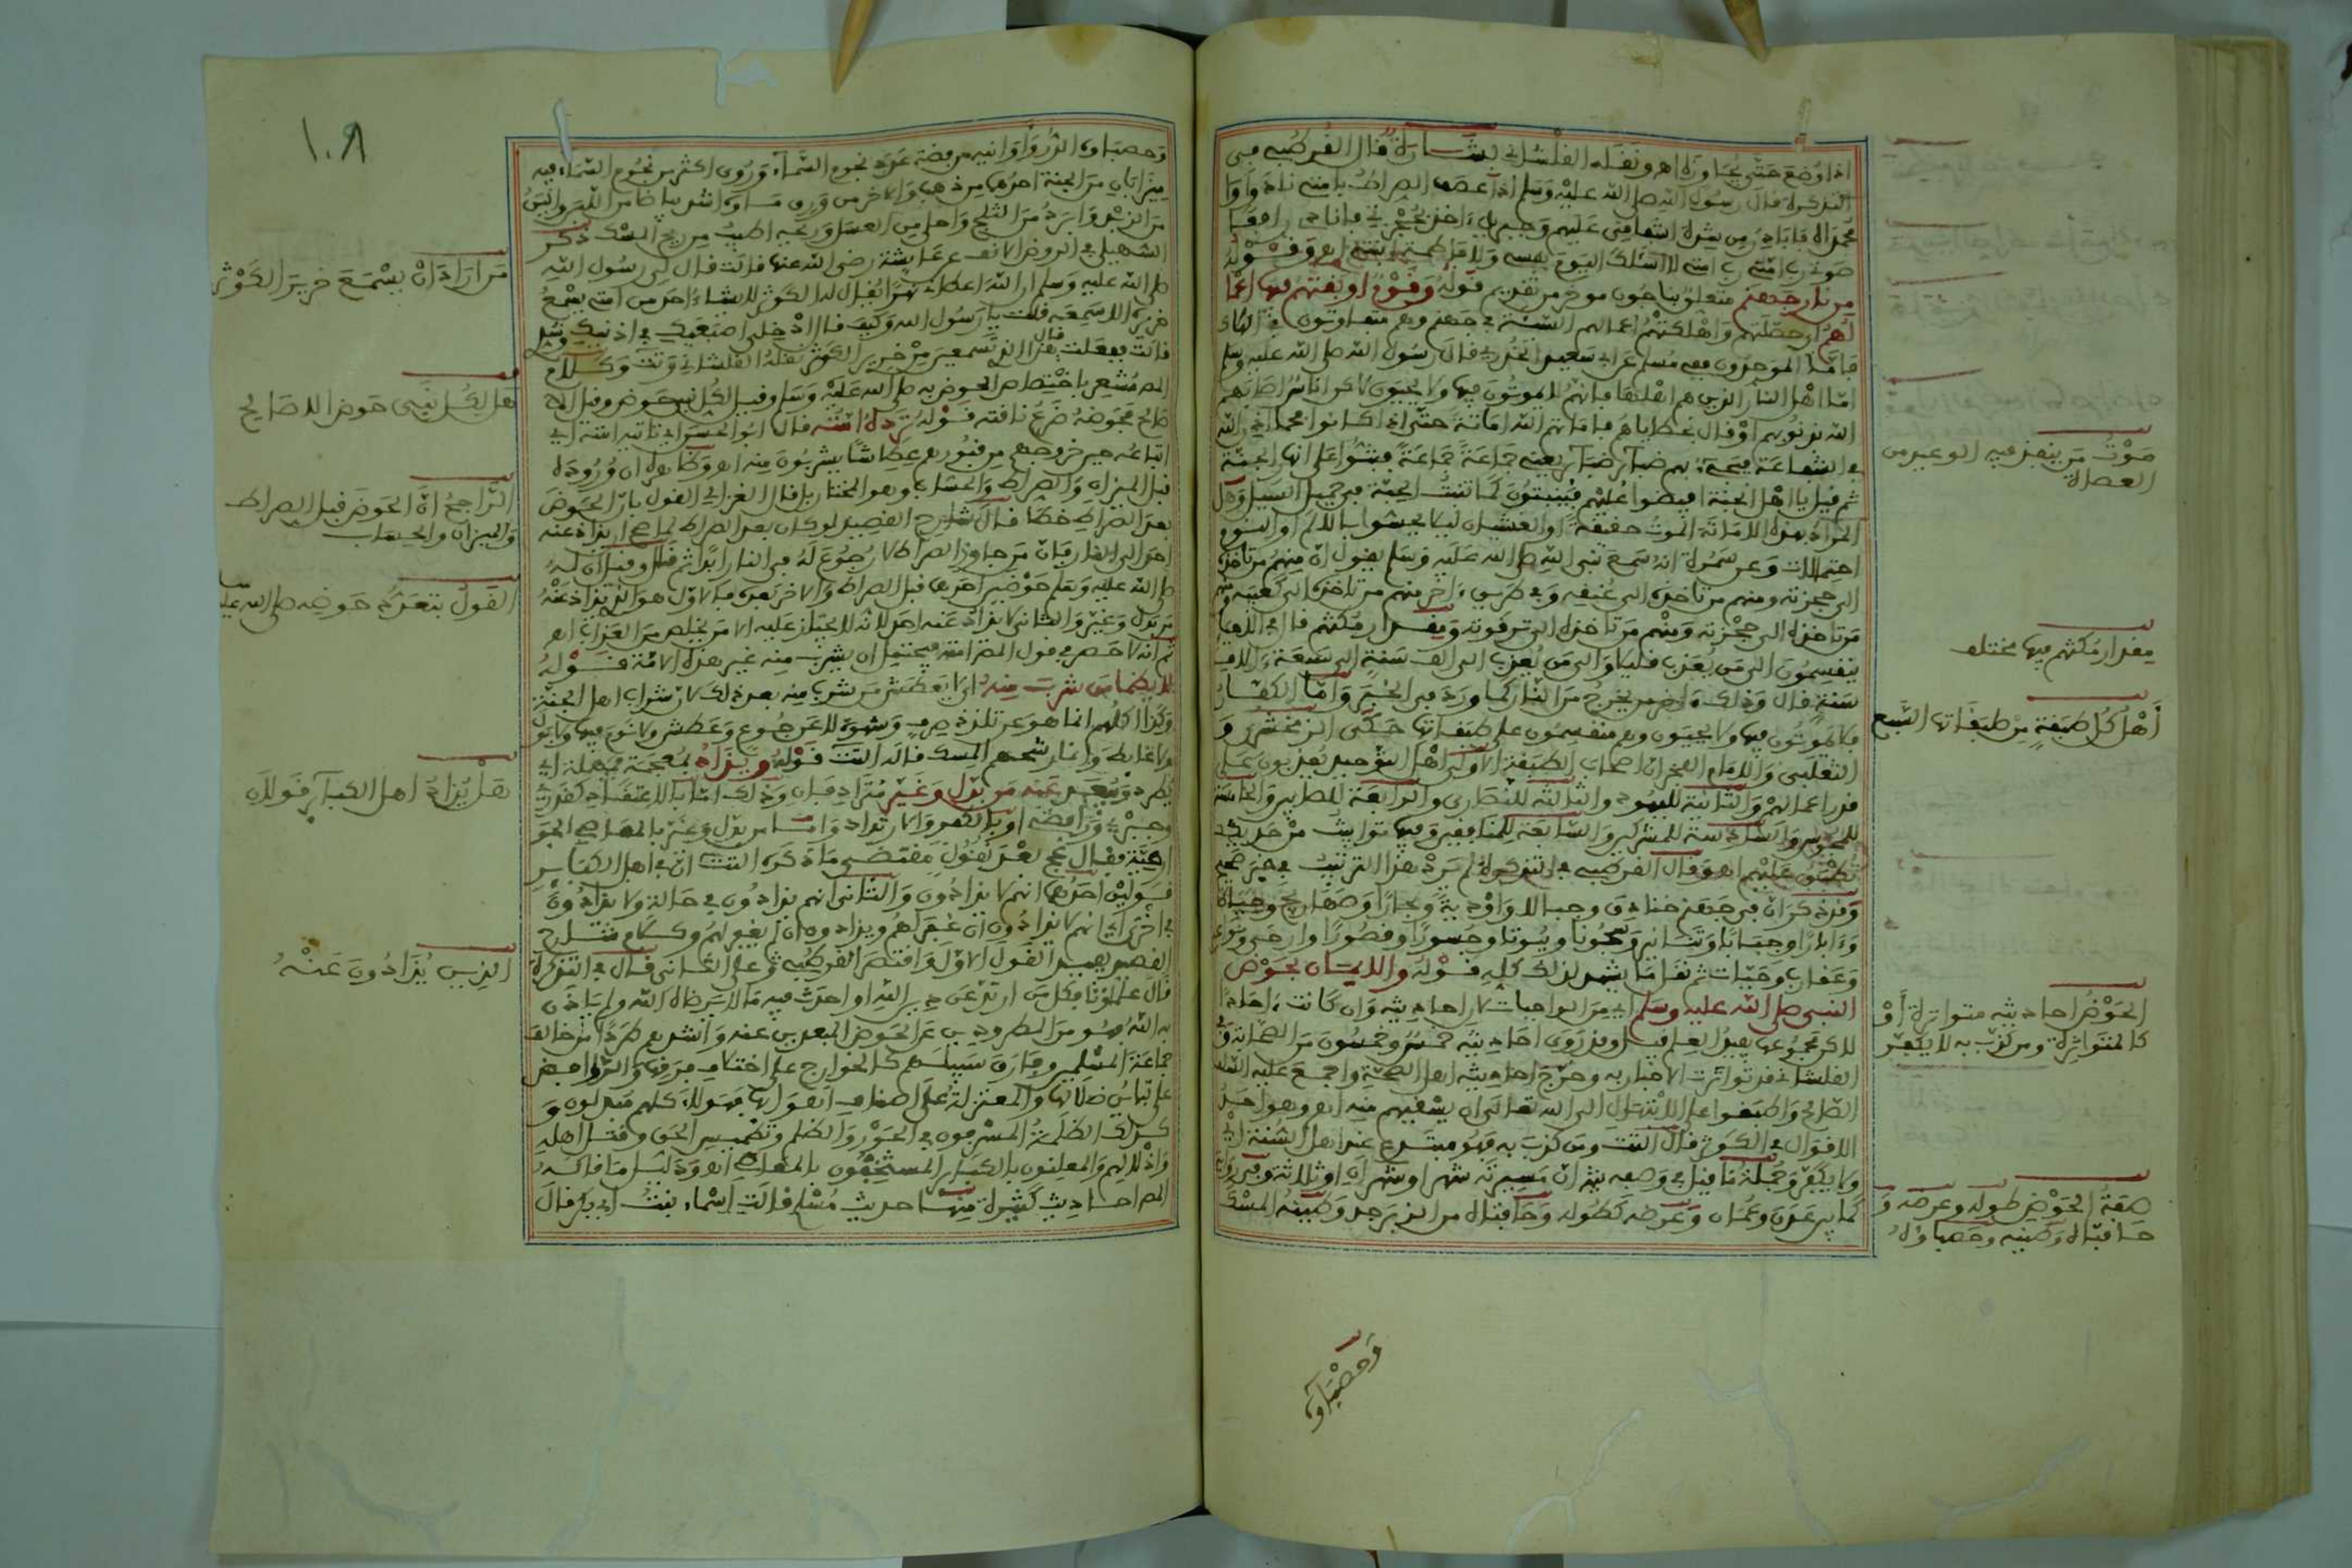 اذا وضع حتى يجاوزه اهـ ونقله القلشاني بشارة قال القرطبي في
التذكرة قال رسول الله صلى الله عليه وسلم اذا عصف الصراط بامتي نادوا وا
محمداه فابادر من شدة اشفاقي عليهم وجبريل ءاخذ بحجزتي فانادي رافعا
صوتي رب امتي رب امتي لا اسئلك اليوم نفسي ولا فاطمة ابنتي اهـ وقوله
من نار جهنم متعلق بناجون موخر من تقديم قوله وقوم اوبقتهم فيها اعما
لهم اي حصلتهم واهلكتهم اعمالهم السيئة في جهنم وهم متفاوتون في البقاء
فاما الموحدون ففي مسلم عن ابي سعيد الخدري قال رسول الله صلى الله عليه وسلم
اما اهل النار الذين هم اهلها فانهم لا يموتون فيها ولا يحيون لاكن اناس اصابتهم
النار بذنوبهم او قال بخطاياهم فاماتهم الله اماتة حتى اذا كانوا فحما اذن الله
في الشفاعة فجيء بهم ضبائر ضبائر يعني جماعة جماعة فبثوا على انهار الجنة
ثم قيل يا اهل الجنة افيضوا عليهم فينبتون كما تنبت الحبة في حميل السيل وهل
المراد بهذه الاماتة الموت حقيقة او الغشيان ليلا يحسوا بالالم او النوم
احتمالات وعن سمرة انه سمع نبي الله صلى الله عليه وسلم يقول ان منهم من تاخذه
الى حجزته ومنهم من تاخذه الى عنقه وفي طريق ءاخر منهم من تاخذه الى كعبيه ومنهم
من تاخذه الى حجزته ومنهم من تاخذه الى ترقوته ومقدار مكثهم قال في الذهب
ينقسمون الى من يعذب قليلا والى من يعذب الى الف سنة الى سبعة ءالاف
سنة قال وذلك ءاخر من يخرج من النار كما ورد في الخبر واما الكفار
فلا يموتون فيها ولا يحيون وهم منقسمون على طبقاتها حكى الزمخشري و
الثعلبي والامام الفخر ان اصحاب الطبقة الاولى اهل التوحيد يعذبون على
قدر اعمالهم والثانية لليهود والثالثة للنصارى والرابعة للصابين والخامسة
للمجوس والسادسة للمشركين والسابعة للمنافقين وفيها توابيت من حديد
تطبق عليهم اهـ وقال القرطبي في التذكرة لم يرد هذا الترتيب في خبر صحيح
وقد ذكر ان في جهنم خنادق وجبالا واودية وبحارا وصهاريج وحياة
وءابارا وجبابا وتنانير وسجونا وبيوتا وجسورا وقصورا وارحى ونواعر
وعقارب وحيات ثم نقل ما يشهد لذلك كله قوله والايمان بحوض
النبي صلى الله عليه وسلم اي من الواجبات لان احاديثه وان كانت ءاحادا
لاكن مجموعها يفيد العلم قيل وقد روى احاديثه خمس وخمسون من الصحابة وفي
القلشاني قد تواترت الاخبار به وخرج احاديثه اهل الصحة واجمع عليه السلف
الصالح واطبقوا على الابتهال الى الله تعالى ان يسقيهم منه اهـ وهو احد
الاقوال في الكوثر قال التتـ ومن كذب به فهو مبتدع عند اهل السنة اي
ولا يكفر وجملة ما قيل في وصفه ان مسيرته شهر او شهران او ثلاثة وفي رواية
كما بين عدن وعمان وعرضه كطوله وحافتاه من الزبرجد وطينه المسك
موت من ينفذ فيه الوعيد من
العصاة
مقدار مكثهم فيها مختلف
اهل كل طبقة من طبقاتها السبع
الحوض احاديثه متواترة او
كالمتواترة ومن كذب به لا يكفر
صفة الحوض طوله وعرضه و
حافتاه وطينه وحصباؤه
وحصباؤه
١٠٨
وحصباؤه الدر واوانيه من فضة عدد نجوم السماء وروي اكثر من نجوم السماء فيه
ميزابان من الجنة احدهما من ذهب والاخر من ورق ماؤه اشد بياضا من اللبن والين
من الزبد وابرد من الثلج واحلى من العسل وريحه اطيب من ريح المسك ذكر
السهيلي في الروض الانف عن عائشة رضي الله عنها قالت قال لي رسول الله
صلى الله عليه وسلم ان الله اعطاني نهرا يقال له الكوثر لا يشاء احد من امتي يسمع
خريره الا سمعه فقلت يا رسول الله وكيف قال ادخلي اصبعيك في اذنيك وشدي
قالت ففعلت قال هذا الذي تسمعين من خرير الكوثر نقله القلشاني وتتـ وكلام
المص مشعر باختصاص الحوض به صلى الله عليه وسلم وقيل لكل نبي حوض وقيل الا
صالح فحوضه ضرع ناقته قوله ترده امته قال ابو الحسن اي تاتيه امته اي
اتباعه حين خروجهم من قبورهم عطاشا يشربون منه اهـ وظاهره ان وروده
قبل الميزان والصراط والحساب وهو المختار بل قال الغزالي القول بان الحوض
بعد الصراط خطا قال شارح القصيد لو كان بعد الصراط لما صح ان يذاد عنه
احد الى النار فان من جاوز الصراط لا رجوع له في النار ابدا ثم قال وقيل ان له
صلى الله عليه وسلم حوضين احدهما قبل الصراط والاخر بعده فالاول هو الذي يذاد عنه
من بدل وغير والثاني لا يذاد عنه احد لانه لا يجتاز عليه الا من يخلص من العذاب اهـ
ثم انه لا حصر في قول المص امته فيحتمل ان يشرب منه غير هذه الامة قوله
لا يظما من شرب منه اي لا يعطش من شرب منه بعد ذلك لان شراب اهل الجنة
وكذا اكلهم انما هو عن تلذذ صرف وشهوة لا عن جوع وعطش ولا نوم فيها ولا بول
ولا غائط وانما رشحهم المسك قاله التتـ قوله ويذاد بمعجمة فمهملة اي
يطرد ويبعد عنه من بدل وغير مترادفان وذلك اما بالاعتقاد كقدري
وجبري ورافضي او بالكفر والارتداد واما من بدل وغير بالمعاصي الجو
ارحية فقال عج بعد نقول مقتضى ما ذكره التتـ ان في اهل الكبائر
قولين احدهما انهم لا يذادون والثاني انهم يذادون في حالة ولا يذادون
في اخرى اي انهم لا يذادون ان غفر لهم ويذادون ان لم يغفر لهم وكلام شارح
القصيد يفيد القول الاول واقتصر القرطبي على الثاني قال في التذكرة
قال علماؤنا فكل من ارتد عن دين الله او احدث فيه ما لا يرضاه الله ولم ياذن
به الله فهو من المطرودين عن الحوض المبعدين عنه واشدهم طردا من خالف
جماعة المسلمين وفارق سبيلهم كالخوارج على اختلاف فرقها والروافض
على تباين ضلالها والمعتزلة على اصناف اهوائها فهولاء كلهم مبدلون و
كذلك الظلمة المسرفون في الجور والظلم وتطميس الحق وقتل اهله
واذلالهم والمعلنون بالكبائر المستخفون بالمعاصي اهـ ودليل ما قاله
المص احاديث كثيرة منها حديث مسلم قالت اسماء بنت ابي بكر قال
من اراد ان يسمع خرير الكوثر
هل لكل نبي حوض الا صالح
الراجح ان الحوض قبل الصراط
والميزان والحساب
القول بتعدد حوضه صلى الله عليه
هل يذاد اهل الكبائر قولان
الذين يذادون عنه